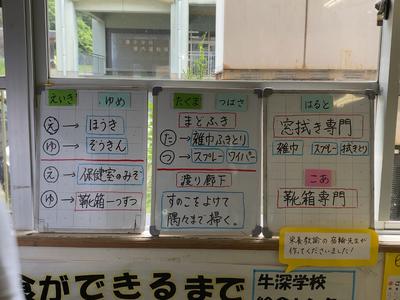 えいき ゆめ
え → ほうき
ゆ → ぞうきん
え → 保健室のみぞ
ゆ → 靴箱一つずつ
たくま つばさ
まどふき
た → 雑巾ふきとり
つ → スプレー ワイパー
渡り廊下
すのこをよけて
隅々まで掃く。
はると
窓拭き専門
雑巾 スプレー 拭きとり
こあ
靴箱専門
栄養教諭の
作ってくださいました!
食ができるまで
牛深学校